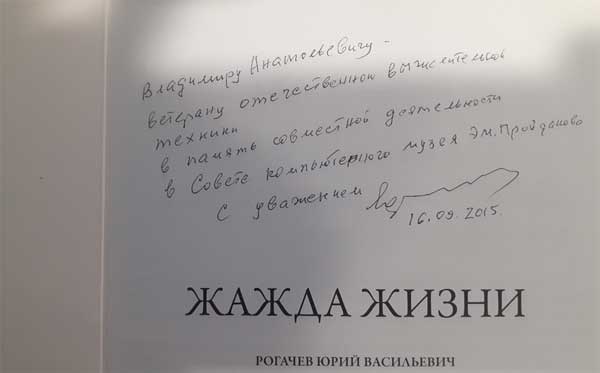 Владимиру Анатольевичу -
ветерану отечественной вычислительной
техники
в память совместной деятельности
в Совете компьютерного музея Эм. Пройдакова
С уважением
16.09.2015.
ЖАЖДА ЖИЗНИ
РОГАЧЕВ ЮРИЙ ВАСИЛЬЕВИЧ